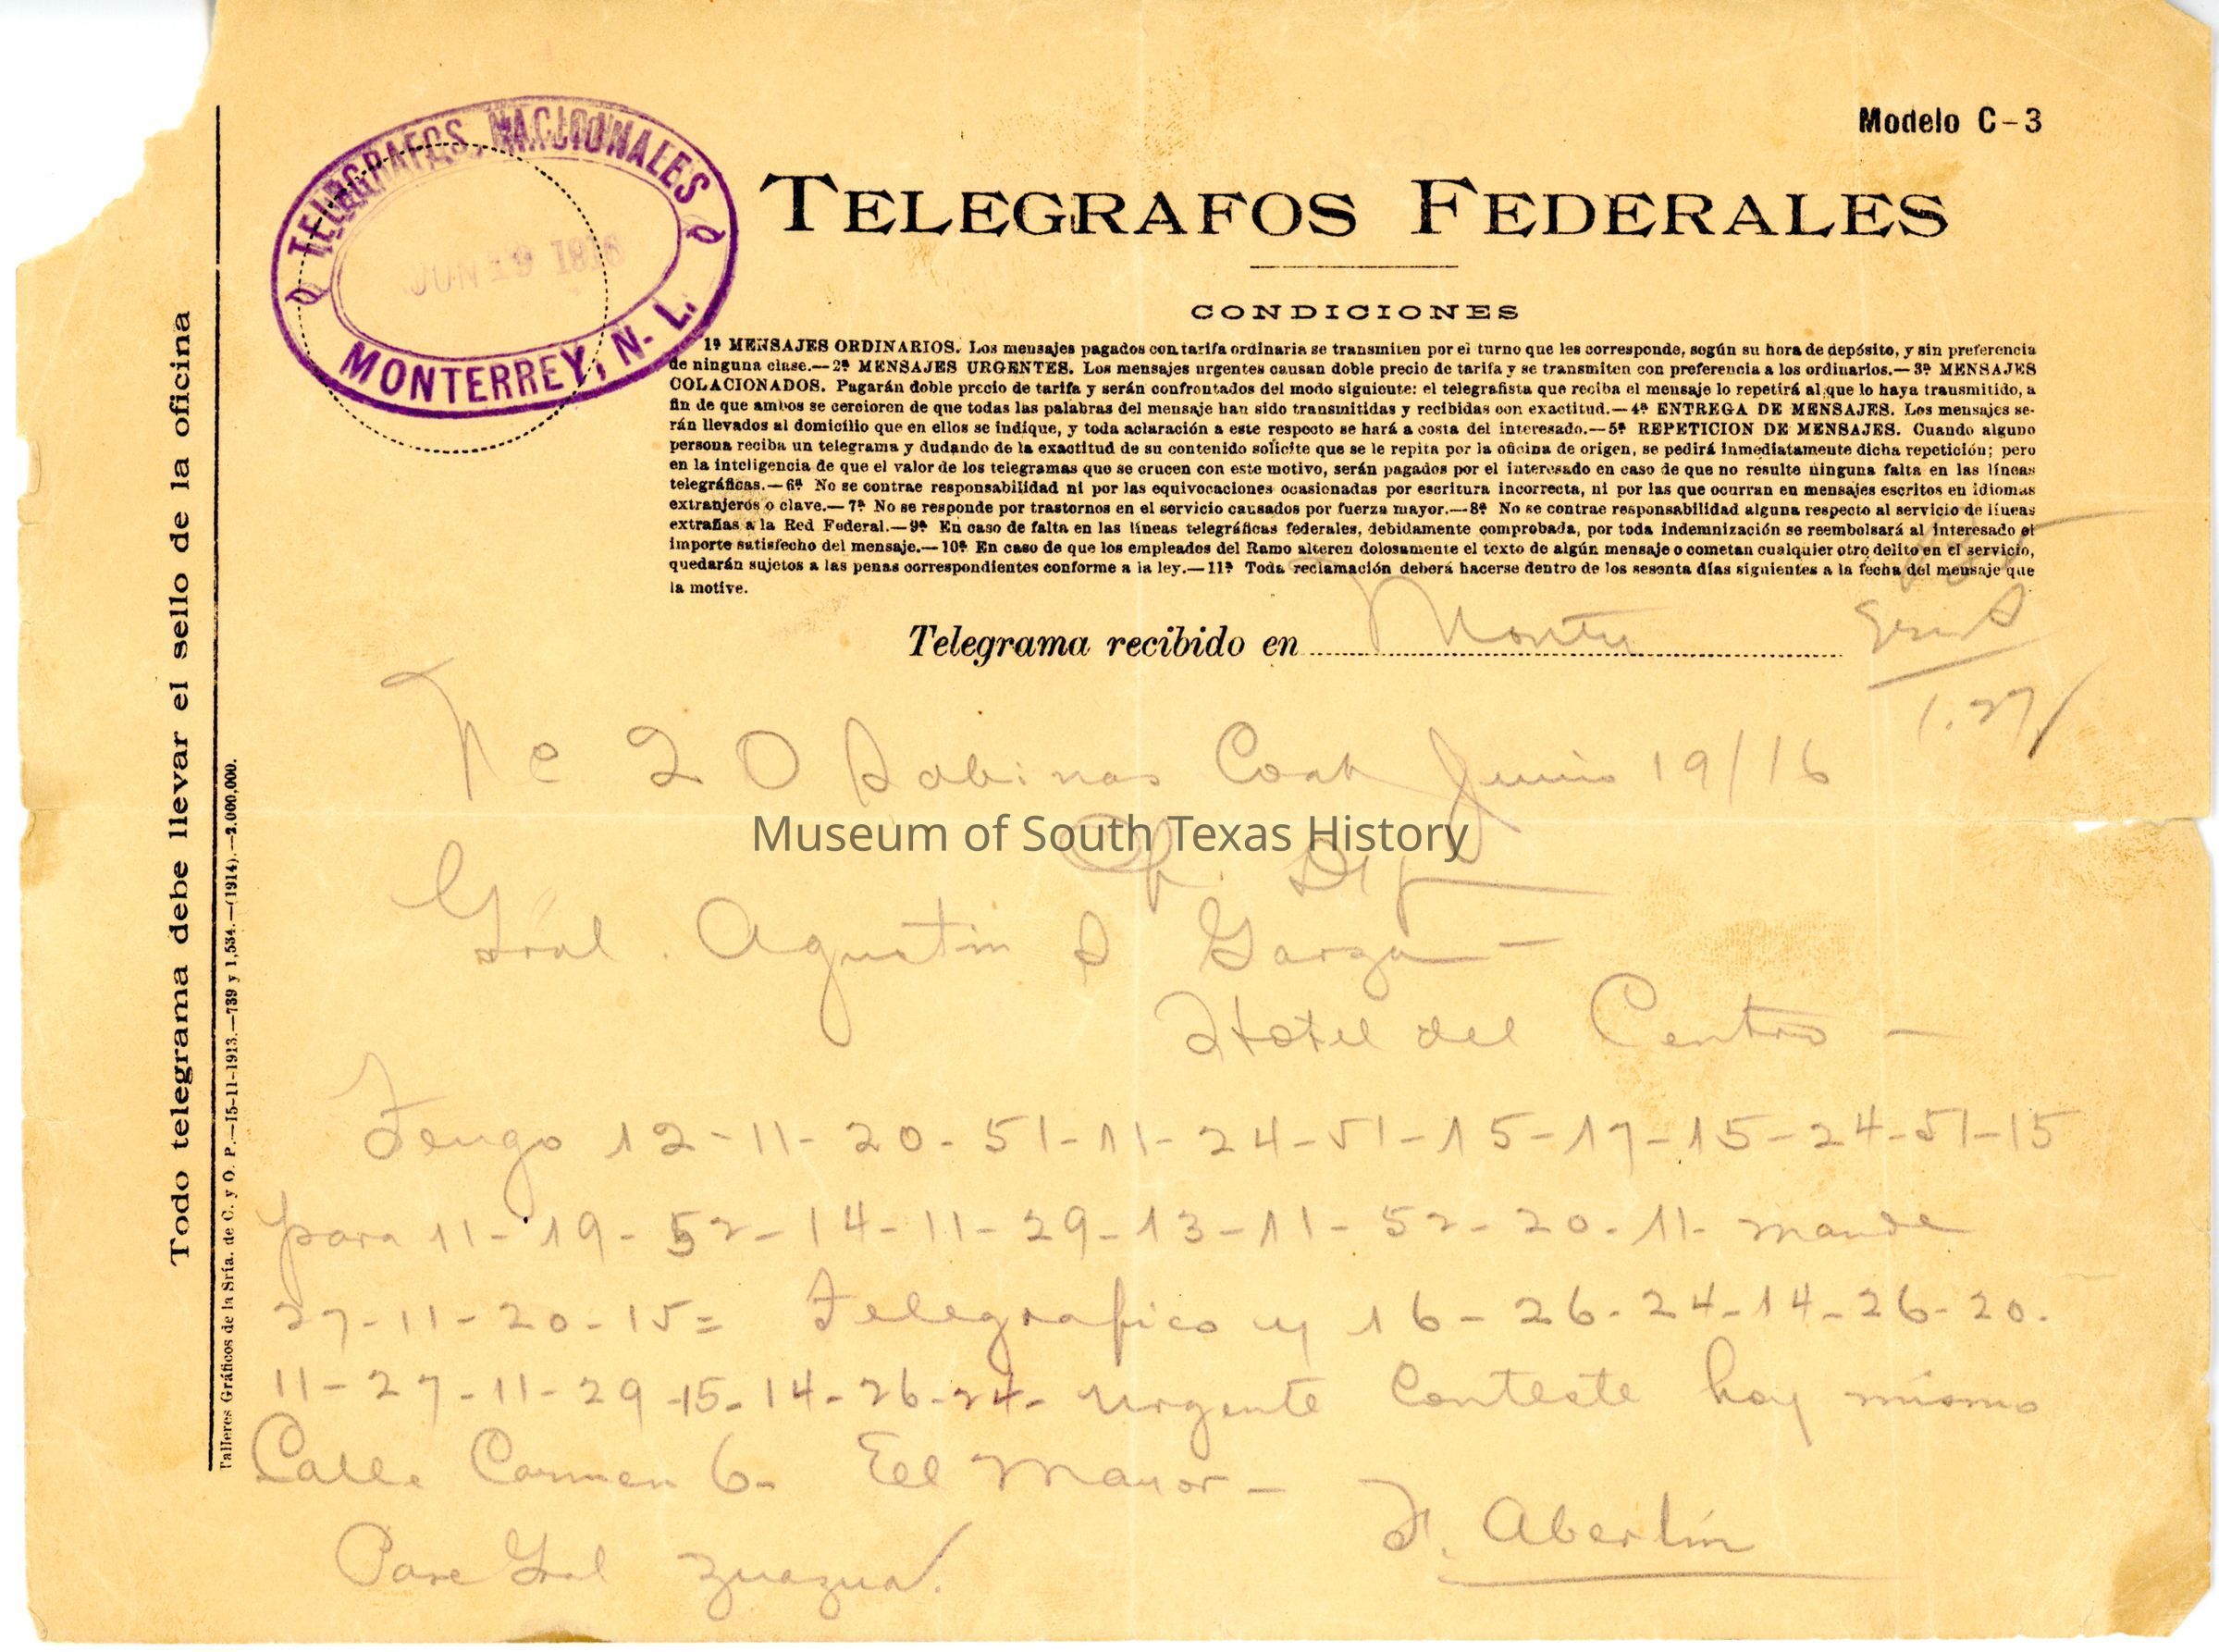 Modelo C-3
TELEGRAFOS, NACIONALES
JUN 19 1916
MONTERREY, N. L.
TELEGRAFOS FEDERALES
CONDICIONES
1ª MENSAJES ORDINARIOS. Los mensajes pagados con tarifa ordinaria se transmiten por el turno que les corresponde, según su hora de depósito, y sin preferencia
de ninguna clase.—2ª MENSAJES URGENTES. Los mensajes urgentes causan doble precio de tarifa y se transmiten con preferencia a los ordinarios.—3ª MENSAJES
COLACIONADOS. Pagarán doble precio de tarifa y serán confrontados del modo siguiente: el telegrafista que reciba el mensaje lo repetirá al que lo haya transmitido, a
fin de que ambos se cercioren de que todas las palabras del mensaje han sido transmitidas y recibidas con exactitud.—4ª ENTREGA DE MENSAJES. Los mensajes se-
rán llevados al domicilio que en ellos se indique, y toda aclaración a este respecto se hará a costa del interesado.—5ª REPETICION DE MENSAJES. Cuando alguno
persona reciba un telegrama y dudando de la exactitud de su contenido solicite que se le repita por la oficina de origen, se pedirá inmediatamente dicha repetición; pero
en la inteligencia de que el valor de los telegramas que se crucen con este motivo, serán pagados por el interesado en caso de que no resulte ninguna falta en las líneas
telegráficas.—6ª No se contrae responsabilidad ni por las equivocaciones ocasionadas por escritura incorrecta, ni por las que ocurran en mensajes escritos en idiomas
extranjeros o clave.—7ª No se responde por trastornos en el servicio causados por fuerza mayor.—8ª No se contrae responsabilidad alguna respecto al servicio de líneas
extrañas a la Red Federal.—9ª En caso de falta en las líneas telegráficas federales, debidamente comprobada, por toda indemnización se reembolsará al interesado el
importe satisfecho del mensaje.—10ª En caso de que los empleados del Ramo alteren dolosamente el texto de algún mensaje o cometan cualquier otro delito en el servicio,
quedarán sujetos a las penas correspondientes conforme a la ley.—11ª Toda reclamación deberá hacerse dentro de los sesenta días siguientes a la fecha del mensaje que
la motive.
Telegrama recibido en Montey
1.27
20 Sabinas Coah Junio 19/16
Museum of South Texas History
Of.
Gral. Agustin S Garza—
Hotel del Centro—
Tengo 12-11-20-51-11-24-51-15-17-15-24-51-15
para 11-19-52-14-11-29-13-11-52-20-11- mande
27-11-20-15= Telegrafico y 16-26-24-14-26-20.
11-27-11-29-15-14-26-24- urgente Conteste hoy mismo
Calle Carmen 6- Eel Mayor-
F. Aberlin
Pase Gral Zuazua.
Todo telegrama debe llevar el sello de la oficina
Talleres Gráficos de la Sría. de C. y O. P.—15-11-1913.—739 y 1,534.—(1914).—2.000,000.